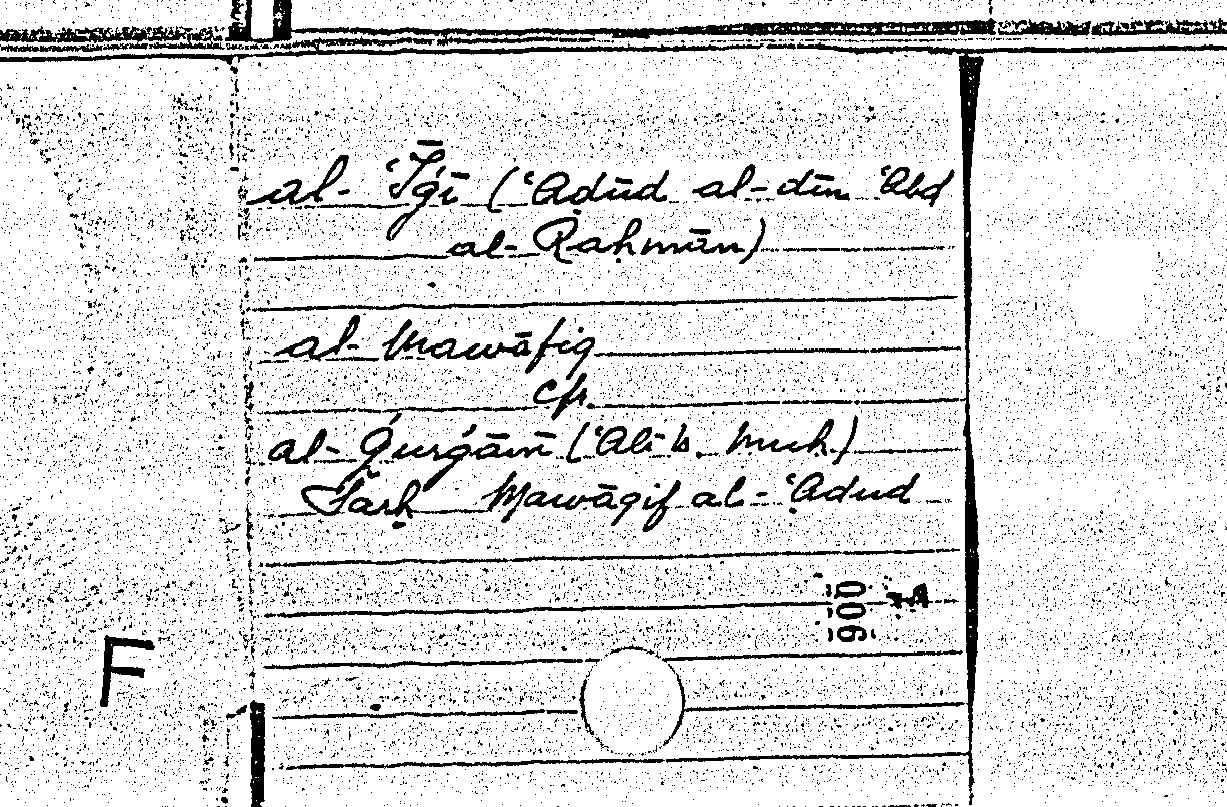 al- ‘Īǵī (‘Aḍūd al-dīn ‘Abd
al-Raḥmān)
al-Mawāfiq
cfr.
al-Ǵurǵānī (‘Alī b. Muḥ)
Šarḥ Mawāqif al-‘Aḍud
900
F